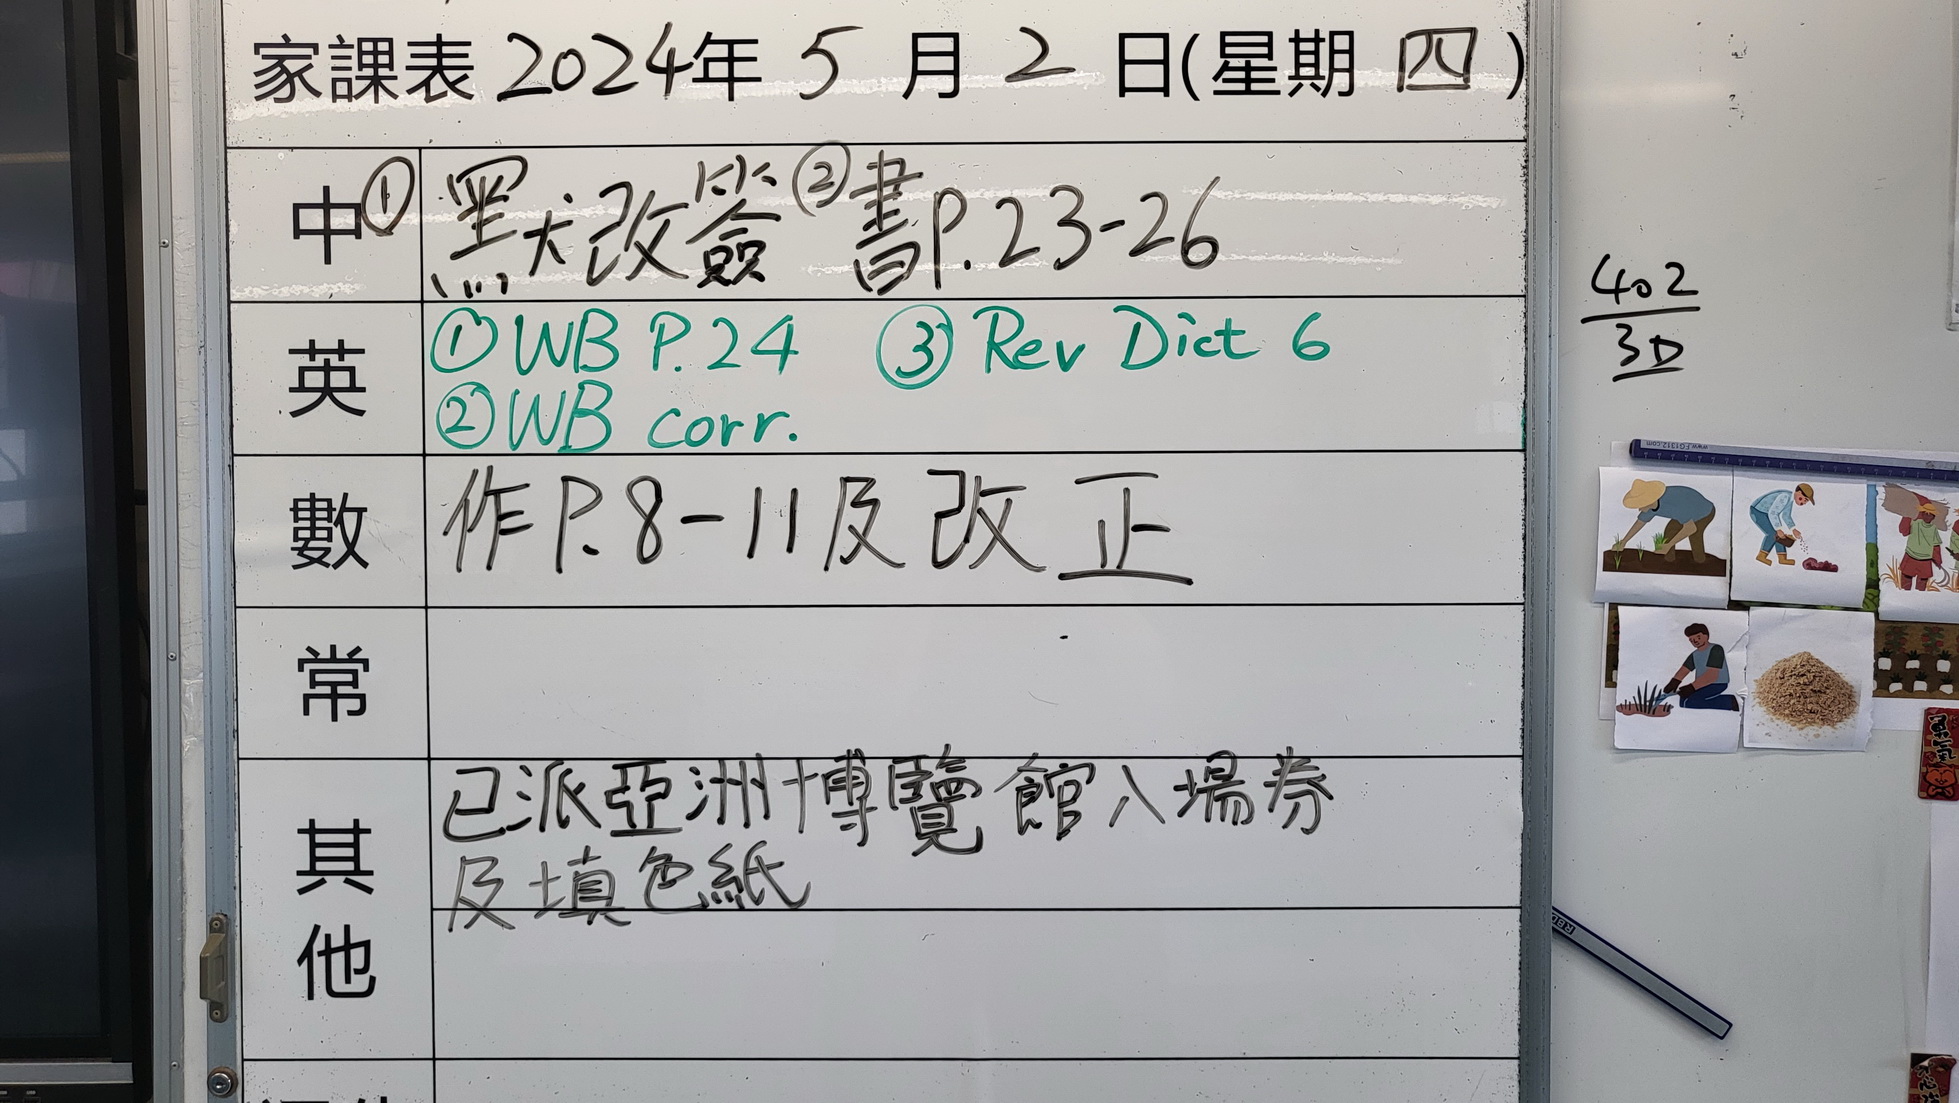 家課表 2024年 5 月 2 日(星期 四)
中 ①默改簽 ②書P.23-26
英 ①WB P.24 ③Rev Dict 6
②WB corr.
數 作P.8-11及改正
常
其他 已派亞洲博覽館入場券
及填色紙
402
3D
www.FG1312.com